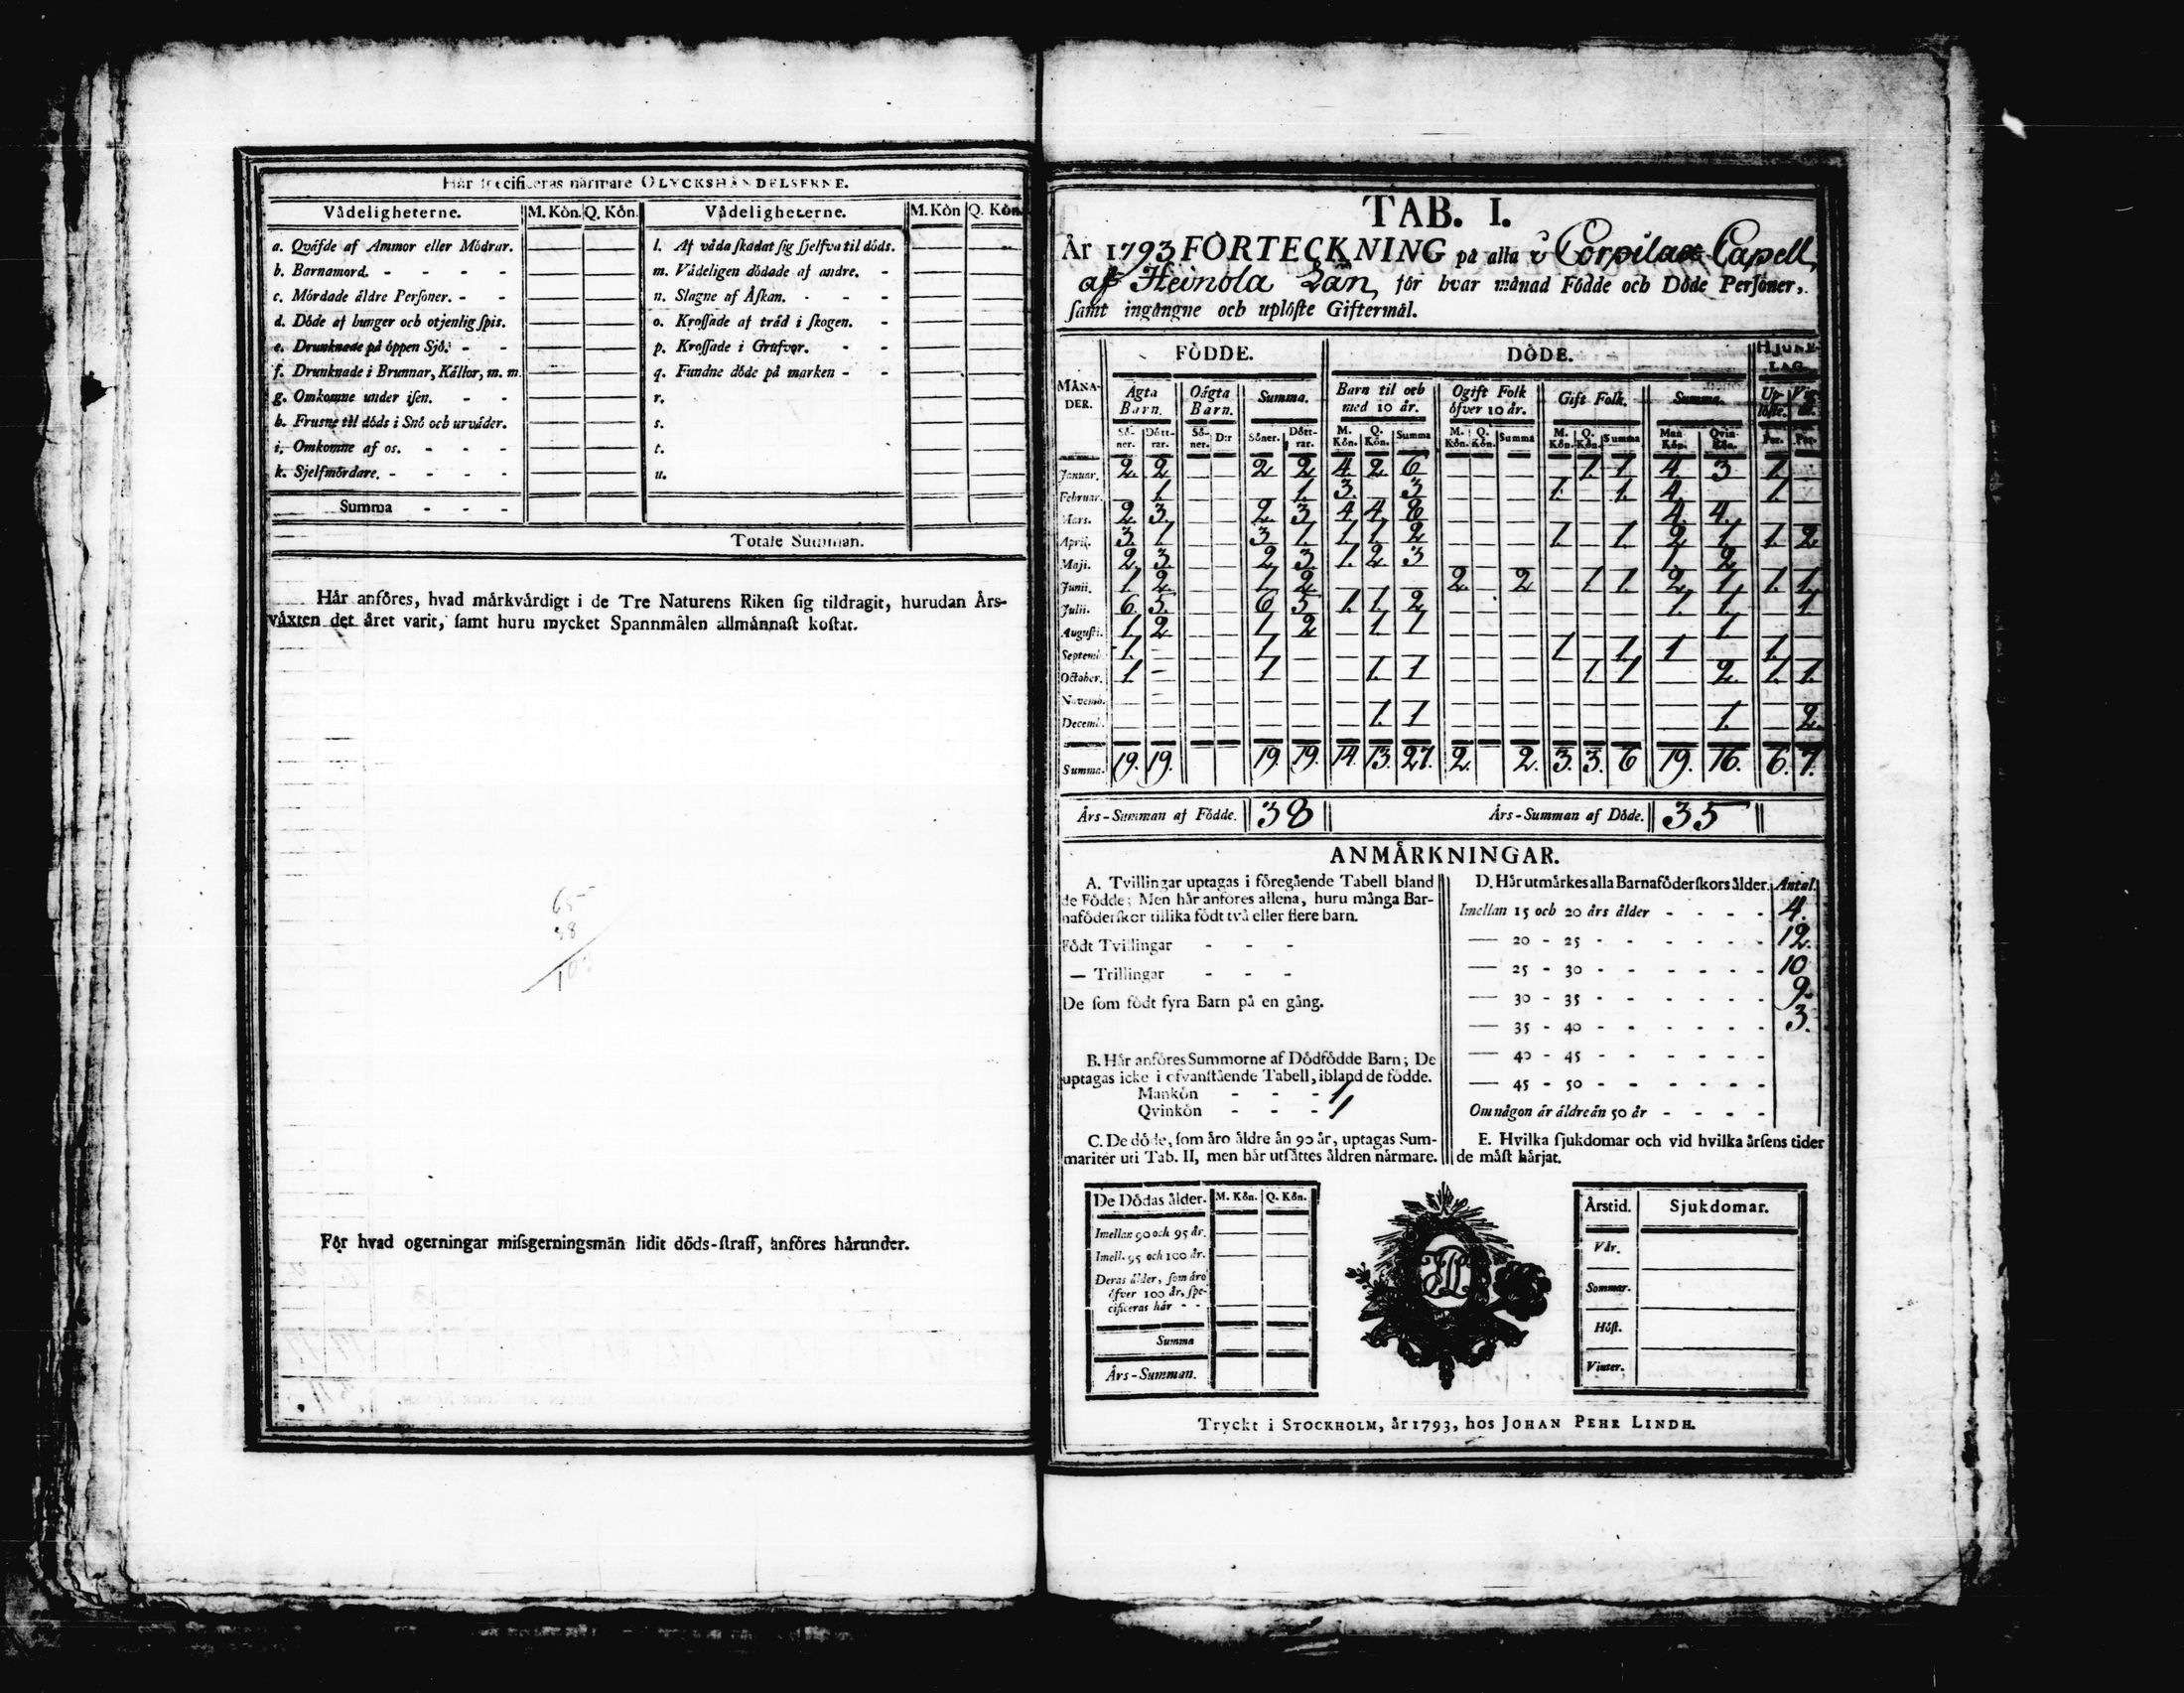 Här specificeras närmare OLYCKSHÄNDELSERNE.
Vådeligheterne. M. Kön. Q. Kön. Vådeligheterne. M. Kön Q. Kön
a. Qväfde af Ammor eller Mödrar. l. Af våda skadat sig sjelfva til döds.
b. Barnamord. - - - - m. Vådeligen dödade af andre. -
c. Mördade äldre Personer. - - n. Slagne af Åskan. - - -
d. Döde af hunger och otjenlig spis. o. Krossade af träd i skogen. -
e. Drunknade på öppen Sjö. - - p. Krossade i Grufvor. - -
f. Drunknade i Brunnar, Källor, m. m. q. Fundne döde på marken - -
g. Omkomne under isen. - - r.
h. Frusne til döds i Snö och urväder. s.
i. Omkomne af os. - - - t.
k. Sjelfmördare. - - - - u.
Summa - - -
Totale Summan.
Här anföres, hvad märkvärdigt i de Tre Naturens Riken sig tildragit, hurudan Års-
växten det året varit, samt huru mycket Spannmålen allmännast kostat.
65
38
För hvad ogerningar missgerningsmän lidit döds-straff, anföres härunder.
TAB. I.
År 1793 FÖRTECKNING på alla i Corpilax Capell
af Heinola Län, för hvar månad Födde och Döde Personer,
samt ingångne och uplöste Giftermål.
MÅNA-DER. FÖDDE. DÖDE. HJONE-LAG.
Ägta Barn. Oägta Barn. Summa. Barn til och med 10 år. Ogift Folk öfver 10 år. Gift Folk. Summa. Up-löste. Vig-de.
Sö-ner. Dött-rar. Sö-ner. D:r Söner. Dött-rar. M. Kön. Q. Kön. Summa M. Kön. Q. Kön. Summa M. Kön. Q. Kön. Summa Man Kön. Qvin Kön. Par. Par.
Januar. 2. 2 2 2 4. 2. 6 1. 1 4. 3 1.
Februar. 1 1. 3. 3 1. 1. 4. 1.
Mars. 2. 3. 2. 3. 4 4. 8 4. 4.
April. 3. 1 3 1. 1. 1. 2 1. 1. 2 1. 1. 2
Maji. 2 3. 2 3. 1. 2 3 1. 2
Junii. 1. 2 1. 2 2. 2 1. 1. 2 1. 1. 1.
Julii. 6. 5. 6 5 1. 1. 2 1 1. 1
Augusti. 1. 2 1 2 1. 1 1.
Septemb. 1. 1 1 1. 1 1.
October. 1 1 1. 1 1. 1 2. 1. 1.
Novemb.
Decemb. 1. 1 1. 2.
Summa. 19. 19. 19. 19. 14. 13. 27. 2. 2. 3. 3. 6 19. 16. 6. 7.
Års-Summan af Födde. 38 Års-Summan af Döde. 35
ANMÄRKNINGAR.
A. Tvillingar uptagas i föregående Tabell bland
de Födde; Men här anföres allena, huru många Bar-
naföderskor tillika födt två eller flere barn.
Födt Tvillingar - - -
— Trillingar - - -
De som födt fyra Barn på en gång.
B. Här anföres Summorne af Dödfödde Barn; De
uptagas icke i ofvanstående Tabell, ibland de födde.
Mankön - - - 1
Qvinkön - - - 1
C. De döde, som äro äldre än 90 år, uptagas Sum-
mariter uti Tab. II, men här utsättes åldren närmare.
D. Här utmärkes alla Barnaföderskors ålder. Antal.
Imellan 15 och 20 års ålder - - - - 4.
— 20 - 25 - - - - - - - 12.
— 25 - 30 - - - - - - - 10
— 30 - 35 - - - - - - - 9.
— 35 - 40 - - - - - - - 3.
— 40 - 45 - - - - - - -
— 45 - 50 - - - - - - -
Om någon är äldre än 50 år - - - -
E. Hvilka sjukdomar och vid hvilka årsens tider
de mäst härjat.
De Dödas ålder. M. Kön. Q. Kön.
Imellan 90 och 95 år.
Imell. 95 och 100 år.
Deras ålder, som äro
öfver 100 år, spe-
cificeras här - -
Summa
Års-Summan.
Årstid. Sjukdomar.
Vår.
Sommar.
Höst.
Vinter.
Tryckt i STOCKHOLM, år 1793, hos JOHAN PEHR LINDH.